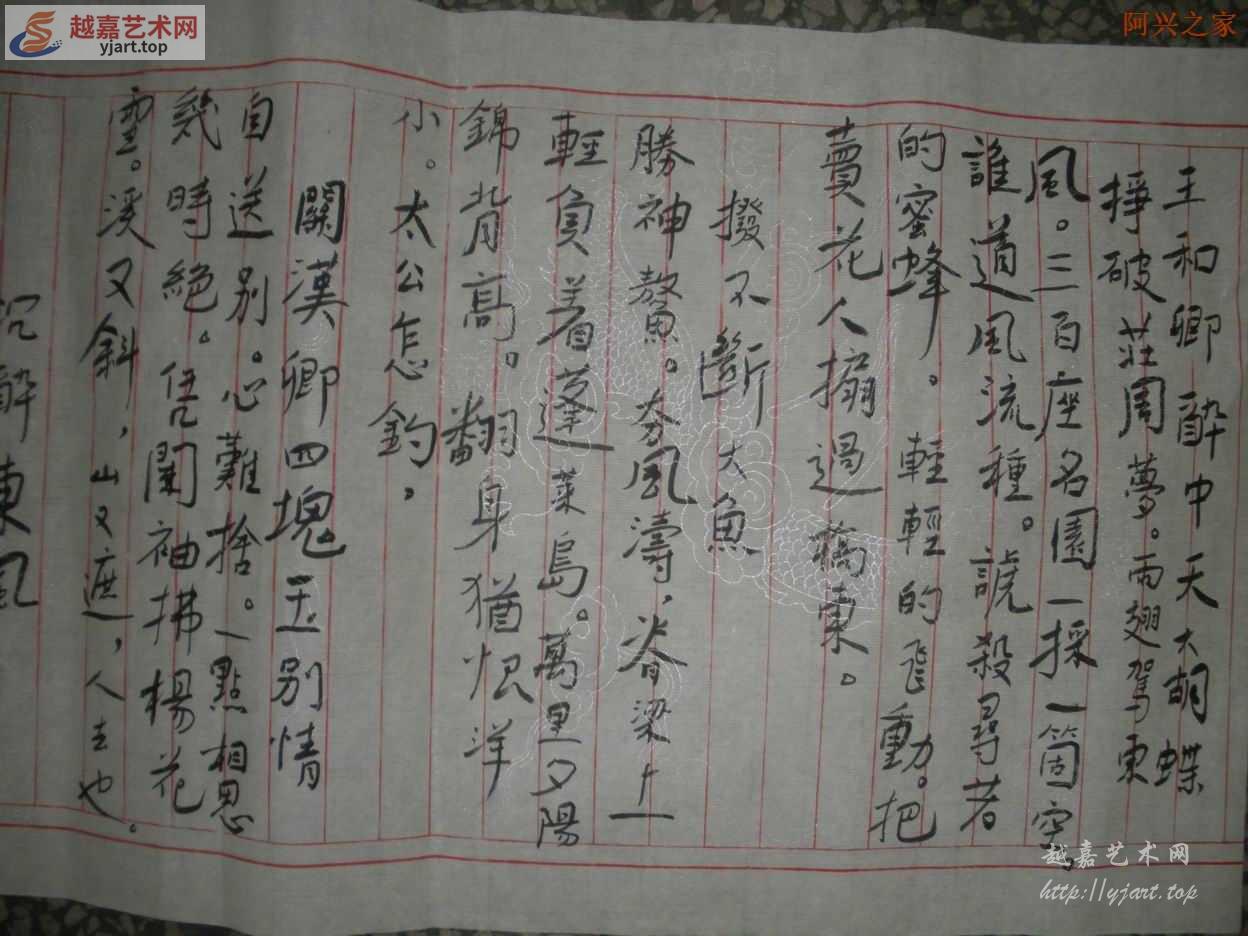 王和卿醉中天大胡蝶
掙破莊周夢。兩翅駕東
風。三百座名園一採一箇空
誰道風流種。諕殺尋芳
的蜜蜂。輕輕的飛動。把
賣花人搧過橋東。
撥不斷大魚
勝神鰲。夯風濤，脊梁上
輕負着蓬萊島。萬里夕陽
錦背高。翻身猶恨洋
小。太公怎釣，
關漢卿四塊玉别情
自送别。心難捨。一點相思
幾時絕。凭闌袖拂楊花
雪。溪又斜，山又遮，人去也。
沉醉東風
越嘉艺术网
yjart.top
阿兴之家
越嘉艺术网
http://yjart.top